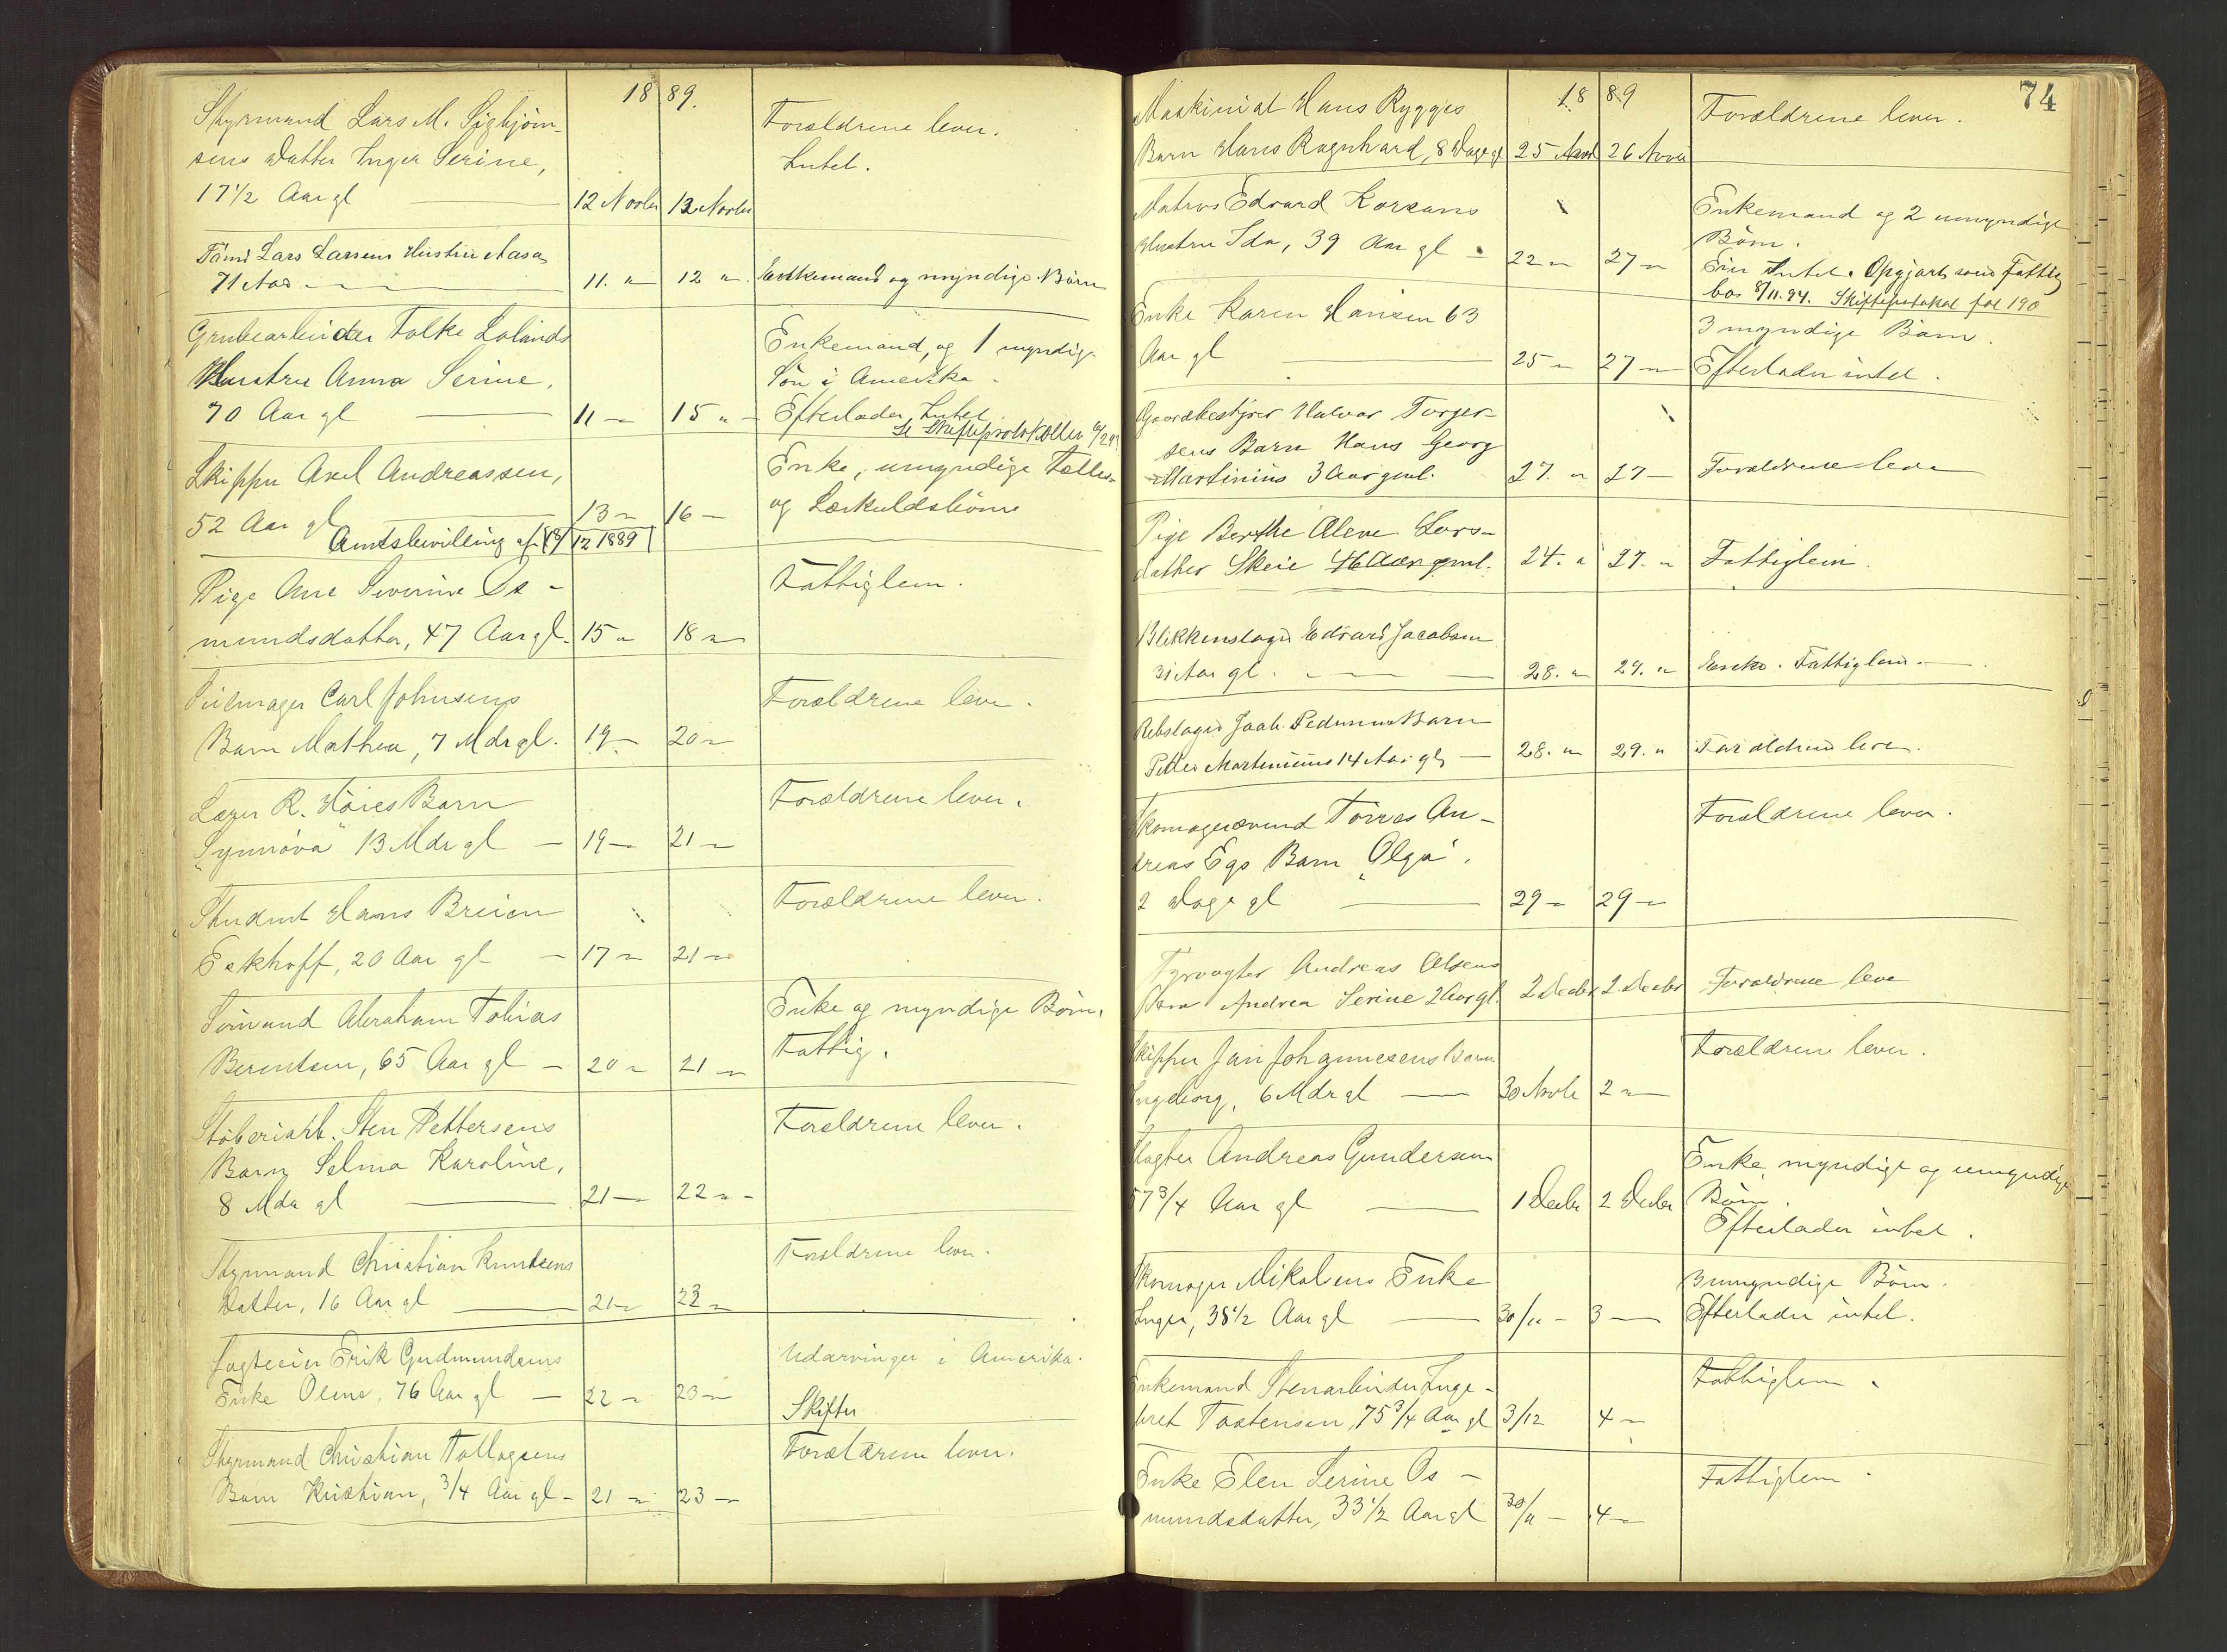 1889.
Styrmand Lars M. Sigbjörn-
sens Datter Inger Serine,
17 1/2 Aar gl — 12 Novbr 13 Novbr Forældrene lever.
Intet.
Lars Larsens Hustru Aasa
71 Aar — 11. " 12 ". Enkemand og myndige Börn
Grubearbeider Folke Lolands
Hustru Anna Serine,
70 Aar gl — 11 — 15 " — Enkemand, og 1 myndig
Sön i Amerika.
Efterlader Intet
Se Skifteprotokollen
Skipper Axel Andreassen,
52 Aar gl 13 " 16 — Enke, umyndige Fælles-
og Særkuldsbörn
Amtsbevilling af 18/12 1889
Pige Ane Severine Os-
mundsdatter, 47 Aar gl. 15 " 18 " Fattiglem.
Carl Johnsens
Barn Mathea, 7 Mdr gl. 19 — 20 " Forældrene lever.
Læger R. Höies Barn
"Synnöva" 13 Mdr gl — 19 — 21 — Forældrene lever.
Student Hans Breien
Eckhoff, 20 Aar gl — 17 " 21 — Forældrene lever.
Sömand Abraham Tobias
Berentsen, 65 Aar gl — 20 " 21 " Enke og myndige Börn.
Fattig.
Stöberiarb. Sten Pettersens
Barn Selma Karoline,
8 Mdr gl — 21 — 22 " - Forældrene lever.
Styrmand Christian Knutsens
Datter, 16 Aar gl — 21 — 23 " Forældrene lever.
Jagteeier Erik Gudmundsens
Enke Oline, 76 Aar gl — 22 " 23 " Udarvinger i Amerika.
Skifter
Styrmand Christian Tollagsens
Barn Kristian, 3/4 Aar gl - 21 " 23 — Forældrene lever.
74
1889
Maskinist Hans Rygges
Barn Hans Ragnhard, 8 Dage gl 25 Novb 26 Novb Forældrene lever.
Matros Edvard Korsans
Hustru Ida, 39 Aar gl - 22 " 27 " Enkemand og 2 umyndige
Börn.
Eier Intet. Opgjort som Fattig
bo 8/11.94. Skifteprotokol fol 190
Enke Karen Hansen 63
Aar gl — 25 " 27 " 3 myndige Börn.
Efterlader intet.
Gaardbestyrer Halvor Torger-
sens Barn Hans Georg
Martinius 3 Aar gml. 27. " 27 — Forældrene leve
Pige Berthe Olene Lars-
datter Skeie 46 Aar gml. 24. " 27. " Fattiglem.
Blikkenslager Edvard Jacobsen
31 Aar gl. — 28. " 29. " Enke. Fattiglem. —
Rebslager Jaab. Pedersens Barn
Petter Martinius 14 Aar gl — 28. " 29. " Forældrene leve.
Skomagersvend Törres An-
dreas Egs Barn "Olga",
2 Dage gl — 29 — 29 — Forældrene lever.
Fyrvogter Andreas Olsens
Barn Andrea Serine 2 Aar gl. 2 Decbr 2 Decbr Forældrene leve
Skipper Jan Johannesens Barn
Ingeborg, 6 Mdr gl — 30 Novb 2 " — Forældrene lever.
Slagter Andreas Gundersen
57 3/4 Aar gl — 1 Decbr 2 Decbr Enke, myndige og umyndige
Börn.
Efterlader intet.
Skomager Mikalsens Enke
Inger, 38 1/2 Aar gl — 30/11 - 3 — 3 umyndige Börn.
Efterlader intet.
Enkemand Stenarbeider Inge-
bret Tostensen, 75 3/4 Aar gl 3/12 4 " Fattiglem.
Enke Elen Serine Os-
mundsdatter, 33 1/2 Aar gl 30/11 - 4 " Fattiglem.